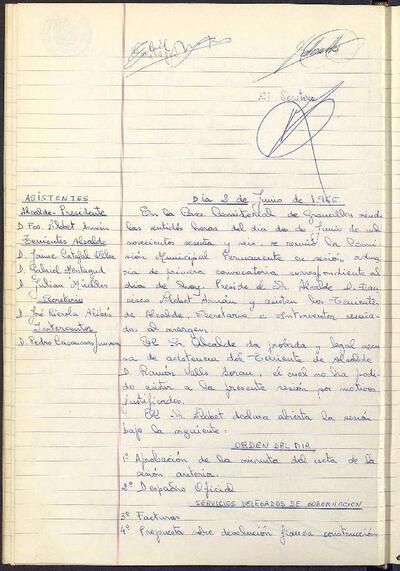 El Secretario
Dia 2 de Junio de 1966.
ASISTENTES
Alcalde-Presidente
D. Fco. Llobet Arnán
Tenientes Alcalde
D. Jaime
D. Gabriel Montagud
D. Julian Miralles
Secretario
D. José
Interventor
D. Pedro
En la Casa Consistorial de Granollers siendo
las veintidós horas del día dos de Junio de mil
novecientos sesenta y seis, se reunió la Comi-
sión Municipal Permanente en sesión ordina-
ria de primera convocatoria correspondiente al
día de hoy. Preside el Sr. Alcalde D. Fran-
cisco Llobet Arnán y asisten los Tenientes
de Alcalde, Secretario e Interventor reseña-
dos al margen.
El Sr. Alcalde da probada y legal excu-
sa de asistencia del Teniente de Alcalde
D. Ramón Valls, el cual no ha podi-
do asistir a la presente sesión por motivos
justificados.
El Sr. Llobet declara abierta la sesión
bajo la siguiente:
ORDEN DEL DIA
1º Aprobación de la minuta del acta de la
sesión anterior.
2º Despacho Oficial
SERVICIOS DELEGADOS DE GOBERNACION
3º Facturas
4º Propuesta sobre devolución fianza construcción